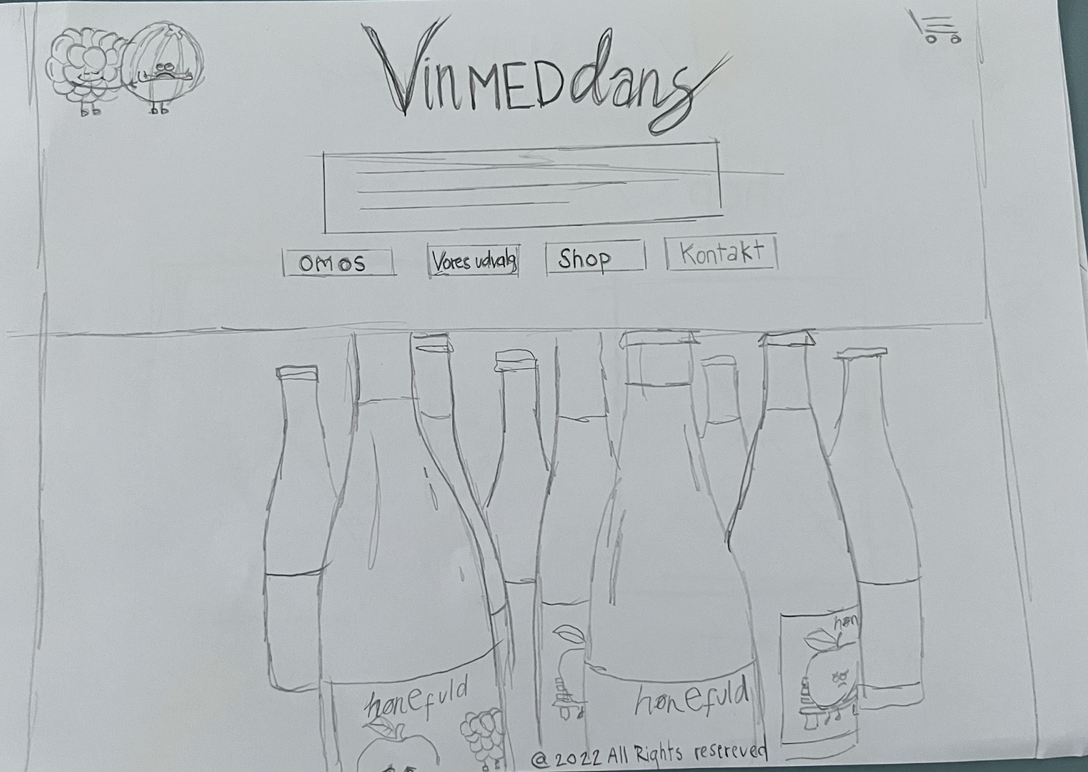 VinMEDdans
OM OS
Vores udvalg
Shop
Kontakt
høn
hønefuld
hønefuld
@ 2022 All Rights resereved